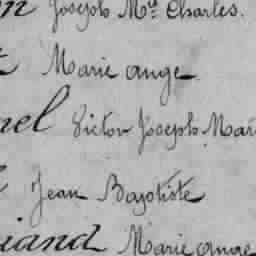 Joseph Mie Charles.
Marie ange
Victor Joseph Mar
Jean Baptiste
Marie ange